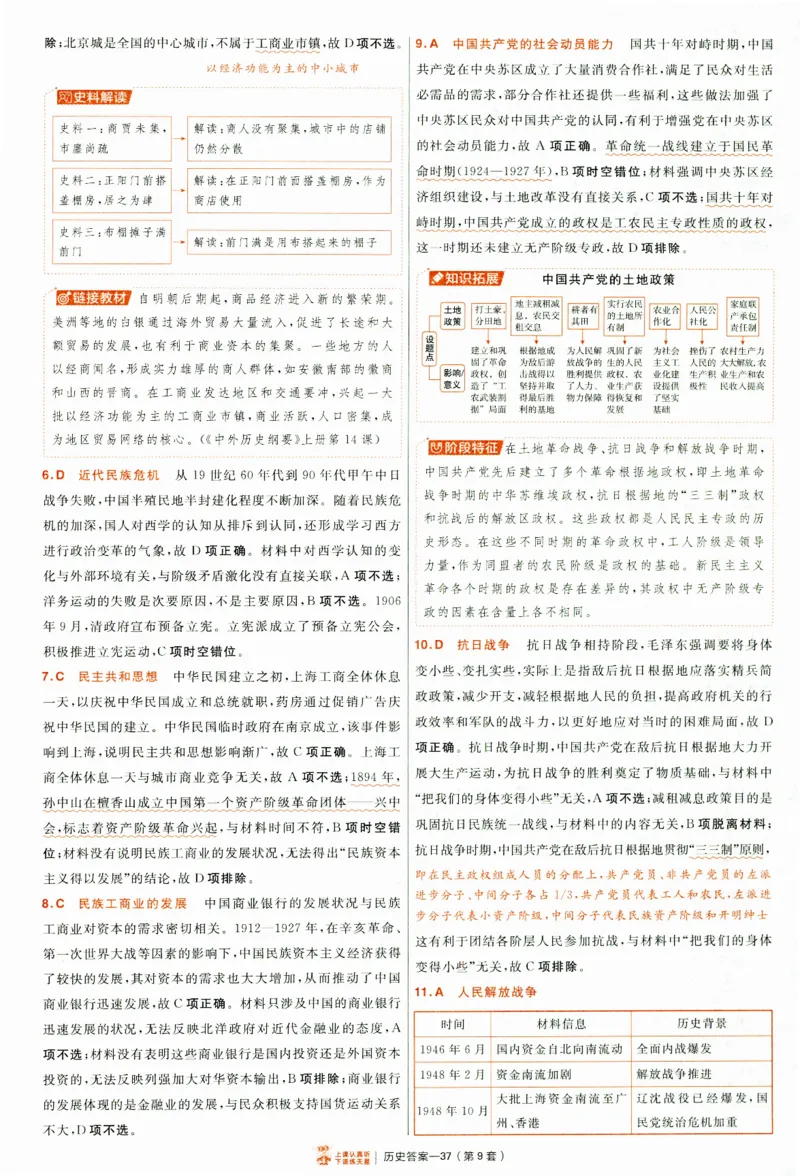 除;北京城是全国的中心城市,不属于工商业市镇,故 D 项不选。
以经济功能为主的中小城市
史料解读
史料一:商贾未集,
市廛尚疏
解读:商人没有聚集,城市中的店铺
仍然分散
史料二:正阳门前搭
盖棚房,居之为肆
解读:在正阳门前面搭盖棚房,作为
商店使用
史料三:布棚摊子满
前门
解读:前门满是用布搭起来的棚子
链接教材 自明朝后期起,商品经济进入新的繁荣期。
美洲等地的白银通过海外贸易大量流入,促进了长途和大
额贸易的发展,也有利于商业资本的集聚。一些地方的人
以经商闻名,形成实力雄厚的商人群体,如安徽南部的徽商
和山西的晋商。在工商业发达地区和交通要冲,兴起一大
批以经济功能为主的工商业市镇,商业活跃,人口密集,成
为地区贸易网络的核心。(《中外历史纲要》上册第 14 课)
6.D 近代民族危机 从 19 世纪 60 年代到 90 年代甲午中日
战争失败,中国半殖民地半封建化程度不断加深。随着民族危
机的加深,国人对西学的认知从排斥到认同,还形成学习西方
进行政治变革的气象,故 D 项正确。材料中对西学认知的变
化与外部环境有关,与阶级矛盾激化没有直接关联,A 项不选;
洋务运动的失败是次要原因,不是主要原因,B 项不选。1906
年 9 月,清政府宣布预备立宪。立宪派成立了预备立宪公会,
积极推进立宪运动,C 项时空错位。
7.C 民主共和思想 中华民国建立之初,上海工商全体休息
一天,以庆祝中华民国成立和总统就职,药房通过促销广告庆
祝中华民国的建立。中华民国临时政府在南京成立,该事件影
响到上海,说明民主共和思想影响渐广,故 C 项正确。上海工
商全体休息一天与城市商业竞争无关,故 A 项不选;1894 年,
孙中山在檀香山成立中国第一个资产阶级革命团体——兴中
会,标志着资产阶级革命兴起,与材料时间不符,B 项时空错
位;材料没有说明民族工商业的发展状况,无法得出“民族资本
主义得以发展”的结论,故 D 项排除。
8.C 民族工商业的发展 中国商业银行的发展状况与民族
工商业对资本的需求密切相关。1912—1927 年,在辛亥革命、
第一次世界大战等因素的影响下,中国民族资本主义经济获得
了较快的发展,其对资本的需求也大大增加,从而推动了中国
商业银行迅速发展,故 C 项正确。材料只涉及中国的商业银行
迅速发展的状况,无法反映北洋政府对近代金融业的态度,A
项不选;材料没有表明这些商业银行是国内投资还是外国资本
投资的,无法反映列强加大对华资本输出,B 项排除;商业银行
的发展体现的是金融业的发展,与民众积极支持国货运动关系
不大,D 项不选。
9.A 中国共产党的社会动员能力 国共十年对峙时期,中国
共产党在中央苏区成立了大量消费合作社,满足了民众对生活
必需品的需求,部分合作社还提供一些福利,这些做法加强了
中央苏区民众对中国共产党的认同,有利于增强党在中央苏区
的社会动员能力,故 A 项正确。革命统一战线建立于国民革
命时期(1924—1927 年),B 项时空错位;材料强调中央苏区经
济组织建设,与土地改革没有直接关系,C 项不选;国共十年对
峙时期,中国共产党成立的政权是工农民主专政性质的政权,
这一时期还未建立无产阶级专政,故 D 项排除。
知识拓展 中国共产党的土地政策
设题点
土地政策
打土豪、分田地
地主减租减息、农民交租交息
耕者有其田
实行农民的土地所有制
农业合作化
人民公社化
家庭联产承包责任制
影响/意义
建立和巩固了革命政权,创造了“工农武装割据”局面
根据地成为敌后游击战得以坚持并取得最后胜利的基地
为人民解放战争的胜利提供了人力、物力保障
巩固了新生的人民政权、农业生产获得恢复和发展
为社会主义工业化建设提供了坚实基础
挫伤了人民的生产积极性
农村生产力大大解放,农业生产和农民收入提高
阶段特征 在土地革命战争、抗日战争和解放战争时期,
中国共产党先后建立了多个革命根据地政权,即土地革命
战争时期的中华苏维埃政权,抗日根据地的“三三制”政权
和抗战后的解放区政权。这些政权都是人民民主专政的历
史形态。在这些不同时期的革命政权中,工人阶级是领导
力量,作为同盟者的农民阶级是政权的基础。新民主主义
革命各个时期的政权是存在差异的,其政权中无产阶级专
政的因素在含量上各不相同。
10.D 抗日战争 抗日战争相持阶段,毛泽东强调要将身体
变小些、变扎实些,实际上是指敌后抗日根据地应落实精兵简
政政策,减少开支,减轻根据地人民的负担,提高政府机关的行
政效率和军队的战斗力,以更好地应对当时的困难局面,故 D
项正确。抗日战争时期,中国共产党在敌后抗日根据地大力开
展大生产运动,为抗日战争的胜利奠定了物质基础,与材料中
“把我们的身体变得小些”无关,A 项不选;减租减息政策目的是
巩固抗日民族统一战线,与材料中的内容无关,B 项脱离材料;
抗日战争时期,中国共产党在敌后抗日根据地贯彻“三三制”原则,
即在民主政权组成人员的分配上,共产党员、非共产党员的左派
进步分子、中间分子各占 1/3,共产党员代表工人和农民,左派进
步分子代表小资产阶级,中间分子代表民族资产阶级和开明绅士
这有利于团结各阶层人民参加抗战,与材料中“把我们的身体
变得小些”无关,故 C 项排除。
11.A 人民解放战争
时间 材料信息 历史背景
1946 年 6 月 国内资金自北向南流动 全面内战爆发
1948 年 2 月 资金南流加剧 解放战争推进
1948 年 10 月 大批上海资金南流至广州、香港 辽沈战役已经爆发,国民党统治危机加重
上课认真听
下课练天星
历史答案—37(第 9 套)